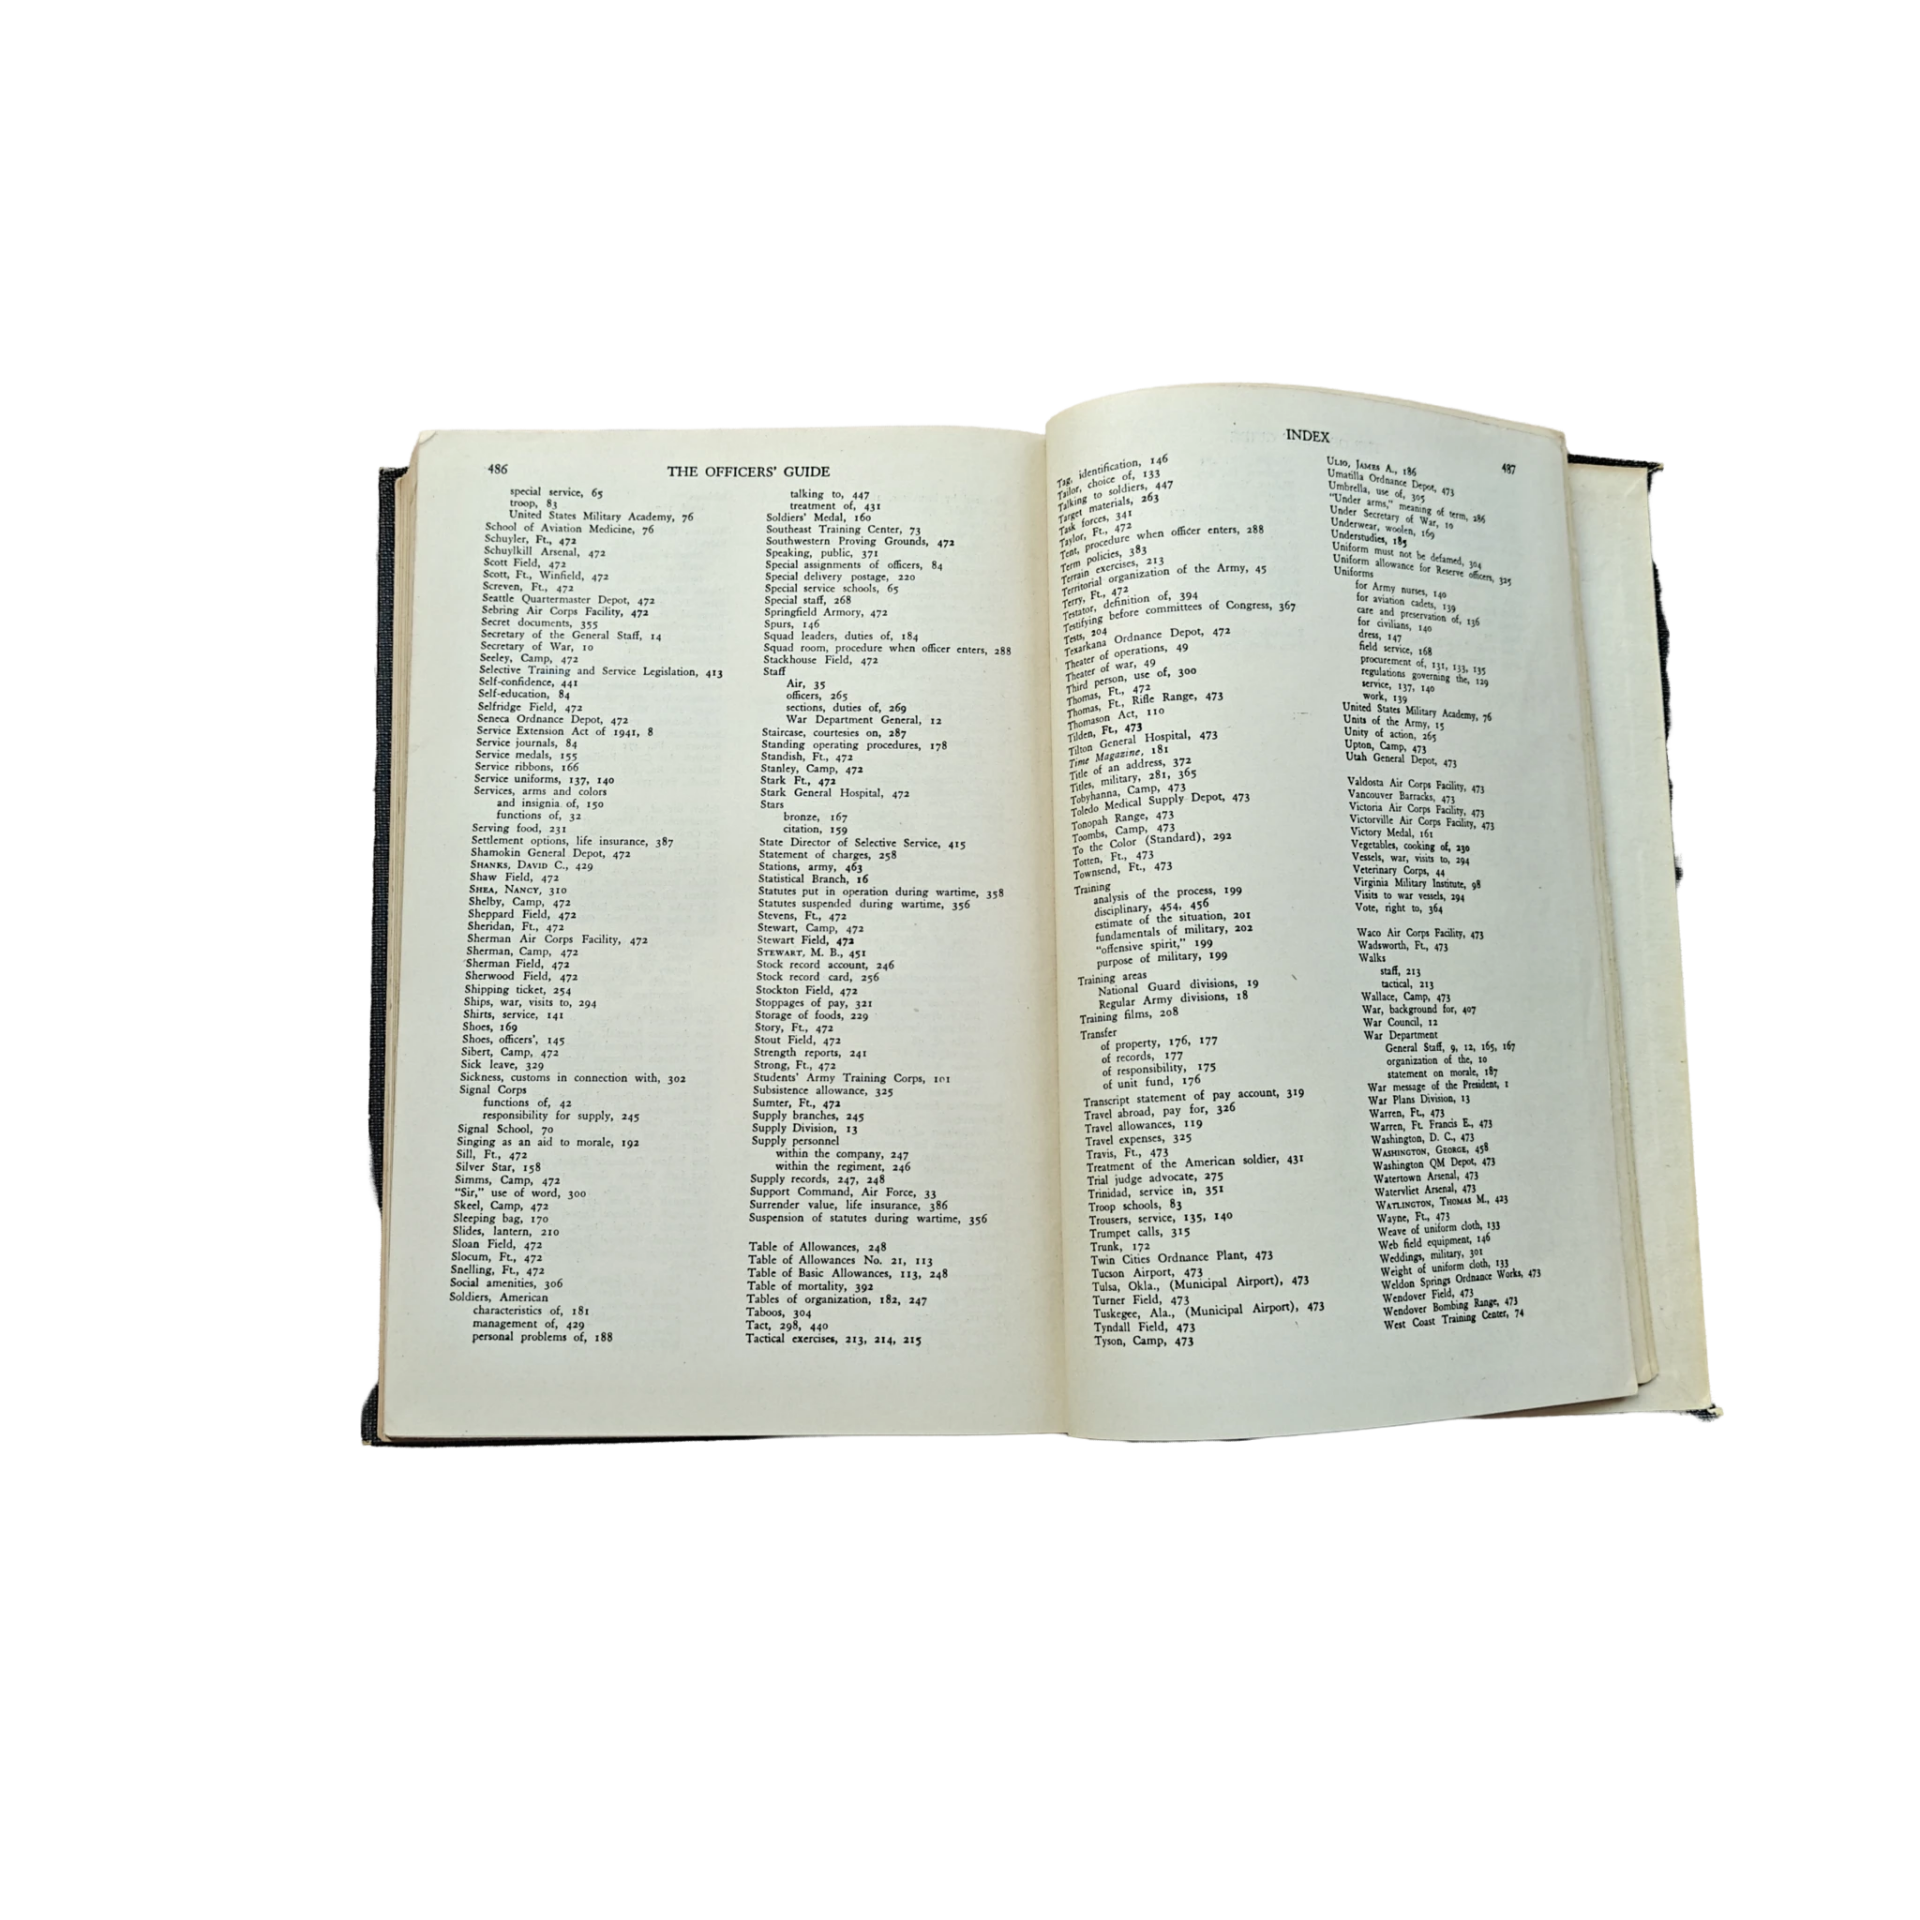 486
THE OFFICERS' GUIDE
special service, 65
troop, 83
United States Military Academy, 76
School of Aviation Medicine, 76
Schuyler, Ft., 472
Schuylkill Arsenal, 472
Scott Field, 472
Scott, Ft., Winfield, 472
Screven, Ft., 472
Seattle Quartermaster Depot, 472
Sebring Air Corps Facility, 472
Secret documents, 355
Secretary of the General Staff, 14
Secretary of War, 10
Seeley, Camp, 472
Selective Training and Service Legislation, 413
Self-confidence, 441
Self-education, 84
Selfridge Field, 472
Seneca Ordnance Depot, 472
Service Extension Act of 1941, 8
Service journals, 84
Service medals, 155
Service ribbons, 166
Service uniforms, 137, 140
Services, arms and colors
and insignia of, 150
functions of, 32
Serving food, 231
Settlement options, life insurance, 387
Shamokin General Depot, 472
SHANKS, DAVID C., 429
Shaw Field, 472
SHEA, NANCY, 310
Shelby, Camp, 472
Sheppard Field, 472
Sheridan, Ft., 472
Sherman Air Corps Facility, 472
Sherman, Camp, 472
Sherman Field, 472
Sherwood Field, 472
Shipping ticket, 254
Ships, war, visits to, 294
Shirts, service, 141
Shoes, 169
Shoes, officers', 145
Sibert, Camp, 472
Sick leave, 329
Sickness, customs in connection with, 302
Signal Corps
functions of, 42
responsibility for supply, 245
Signal School, 70
Singing as an aid to morale, 192
Sill, Ft., 472
Silver Star, 158
Simms, Camp, 472
"Sir," use of word, 300
Skeel, Camp, 472
Sleeping bag, 170
Slides, lantern, 210
Sloan Field, 472
Slocum, Ft., 472
Snelling, Ft., 472
Social amenities, 306
Soldiers, American
characteristics of, 181
management of, 429
personal problems of, 188
talking to, 447
treatment of, 431
Soldiers' Medal, 160
Southeast Training Center, 73
Southwestern Proving Grounds, 472
Speaking, public, 371
Special assignments of officers, 84
Special delivery postage, 220
Special service schools, 65
Special staff, 268
Springfield Armory, 472
Spurs, 146
Squad leaders, duties of, 184
Squad room, procedure when officer enters, 288
Stackhouse Field, 472
Staff
Air, 35
officers, 265
sections, duties of, 269
War Department General, 12
Staircase, courtesies on, 287
Standing operating procedures, 178
Standish, Ft., 472
Stanley, Camp, 472
Stark Ft., 472
Stark General Hospital, 472
Stars
bronze, 167
citation, 159
State Director of Selective Service, 415
Statement of charges, 258
Stations, army, 463
Statistical Branch, 16
Statutes put in operation during wartime, 358
Statutes suspended during wartime, 356
Stevens, Ft., 472
Stewart, Camp, 472
Stewart Field, 472
STEWART, M. B., 451
Stock record account, 246
Stock record card, 256
Stockton Field, 472
Stoppages of pay, 321
Storage of foods, 229
Story, Ft., 472
Stout Field, 472
Strength reports, 241
Strong, Ft., 472
Students' Army Training Corps, 101
Subsistence allowance, 325
Sumter, Ft., 472
Supply branches, 245
Supply Division, 13
Supply personnel
within the company, 247
within the regiment, 246
Supply records, 247, 248
Support Command, Air Force, 33
Surrender value, life insurance, 386
Suspension of statutes during wartime, 356
Table of Allowances, 248
Table of Allowances No. 21, 113
Table of Basic Allowances, 113, 248
Table of mortality, 392
Tables of organization, 182, 247
Taboos, 304
Tact, 298, 440
Tactical exercises, 213, 214, 215
INDEX
487
Tag, identification, 146
Tailor, choice of, 133
Talking to soldiers, 447
Target materials, 263
Task forces, 341
Taylor, Ft., 472
Tent, procedure when officer enters, 288
Term policies, 383
Terrain exercises, 213
Territorial organization of the Army, 45
Terry, Ft., 472
Testator, definition of, 394
Testifying before committees of Congress, 367
Tests, 204
Texarkana Ordnance Depot, 472
Theater of operations, 49
Theater of war, 49
Third person, use of, 300
Thomas, Ft., 472
Thomas, Ft., Rifle Range, 473
Thomason Act, 110
Tilden, Ft., 473
Tilton General Hospital, 473
Time Magazine, 181
Title of an address, 372
Titles, military, 281, 365
Tobyhanna, Camp, 473
Toledo Medical Supply Depot, 473
Tonopah Range, 473
Toombs, Camp, 473
To the Color (Standard), 292
Totten, Ft., 473
Townsend, Ft., 473
Training
analysis of the process, 199
disciplinary, 454, 456
estimate of the situation, 201
fundamentals of military, 202
"offensive spirit," 199
purpose of military, 199
Training areas
National Guard divisions, 19
Regular Army divisions, 18
Training films, 208
Transfer
of property, 176, 177
of records, 177
of responsibility, 175
of unit fund, 176
Transcript statement of pay account, 319
Travel abroad, pay for, 326
Travel allowances, 119
Travel expenses, 325
Travis, Ft., 473
Treatment of the American soldier, 431
Trial judge advocate, 275
Trinidad, service in, 351
Troop schools, 83
Trousers, service, 135, 140
Trumpet calls, 315
Trunk, 172
Twin Cities Ordnance Plant, 473
Tucson Airport, 473
Tulsa, Okla., (Municipal Airport), 473
Turner Field, 473
Tuskegee, Ala., (Municipal Airport), 473
Tyndall Field, 473
Tyson, Camp, 473
ULIO, JAMES A., 186
Umatilla Ordnance Depot, 473
Umbrella, use of, 305
"Under arms," meaning of term, 286
Under Secretary of War, 10
Underwear, woolen, 169
Understudies, 185
Uniform must not be defamed, 304
Uniform allowance for Reserve officers, 325
Uniforms
for Army nurses, 140
for aviation cadets, 139
care and preservation of, 136
for civilians, 140
dress, 147
field service, 168
procurement of, 131, 133, 135
regulations governing the, 129
service, 137, 140
work, 139
United States Military Academy, 76
Units of the Army, 15
Unity of action, 265
Upton, Camp, 473
Utah General Depot, 473
Valdosta Air Corps Facility, 473
Vancouver Barracks, 473
Victoria Air Corps Facility, 473
Victorville Air Corps Facility, 473
Victory Medal, 161
Vegetables, cooking of, 230
Vessels, war, visits to, 294
Veterinary Corps, 44
Virginia Military Institute, 98
Visits to war vessels, 294
Vote, right to, 364
Waco Air Corps Facility, 473
Wadsworth, Ft., 473
Walks
staff, 213
tactical, 213
Wallace, Camp, 473
War, background for, 407
War Council, 12
War Department
General Staff, 9, 12, 165, 167
organization of the, 10
statement on morale, 187
War message of the President, 1
War Plans Division, 13
Warren, Ft., 473
Warren, Ft. Francis E., 473
Washington, D. C., 473
WASHINGTON, GEORGE, 458
Washington QM Depot, 473
Watertown Arsenal, 473
Watervliet Arsenal, 473
WATLINGTON, THOMAS M., 423
Wayne, Ft., 473
Weave of uniform cloth, 133
Web field equipment, 146
Weddings, military, 301
Weight of uniform cloth, 133
Weldon Springs Ordnance Works, 473
Wendover Field, 473
Wendover Bombing Range, 473
West Coast Training Center, 74